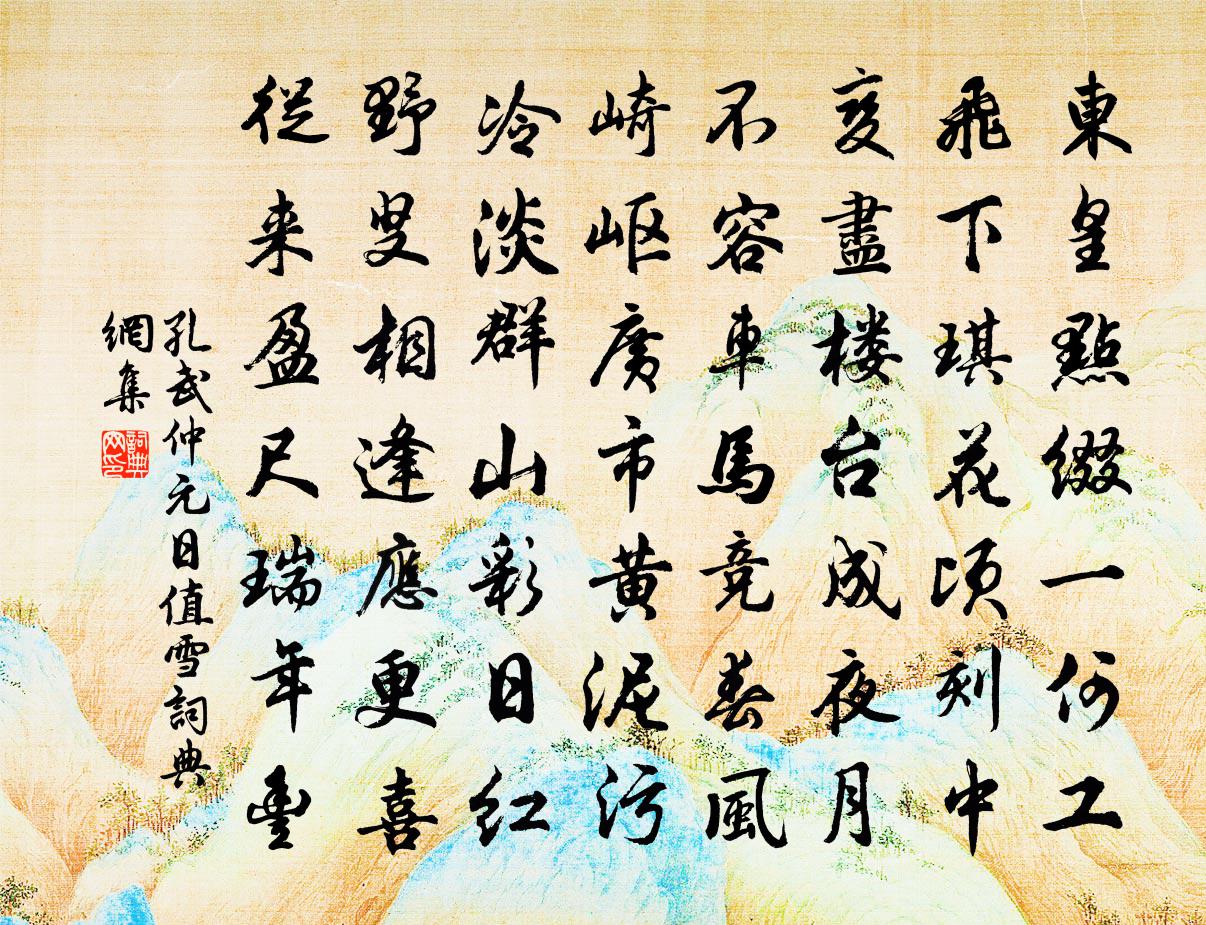 東皇點綴一何工
飛下琪花頃刻中
变盡楼台成夜月
不容車馬竞春風
崎岖廣市黄泥污
冷淡群山彩日红
野叟相逢應更喜
從来盈尺瑞年豊
孔武仲元日值雪詞典
網集
詞典
网印